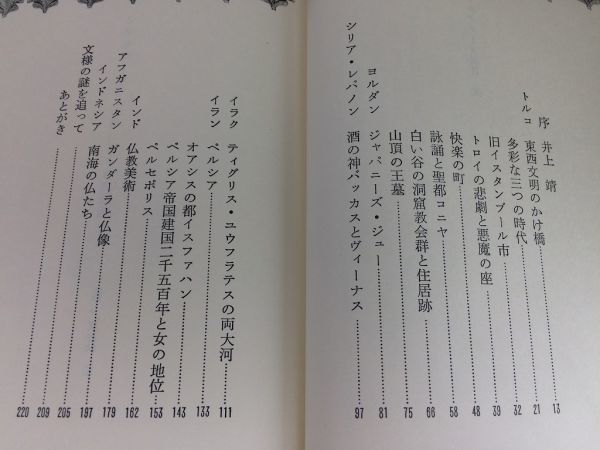 序 井上 靖
トルコ 東西文明のかけ橋 13
多彩な三つの時代 21
旧イスタンブール市 32
トロイの悲劇と悪魔の座 39
快楽の町 48
詠誦と聖都コニヤ 58
白い谷の洞窟教会群と住居跡 66
山頂の王墓 75
ヨルダン ジャパニーズ・ジュー 81
シリア・レバノン 酒の神バッカスとヴィーナス 97
イラク ティグリス・ユウフラテスの両大河 111
イラン ペルシア 133
オアシスの都イスファハン 143
ペルシア帝国建国二千五百年と女の地位 153
ペルセポリス 162
インド 仏教美術 179
アフガニスタン ガンダーラと仏像 197
インドネシア 南海の仏たち 205
文様の謎を追って 209
あとがき 220